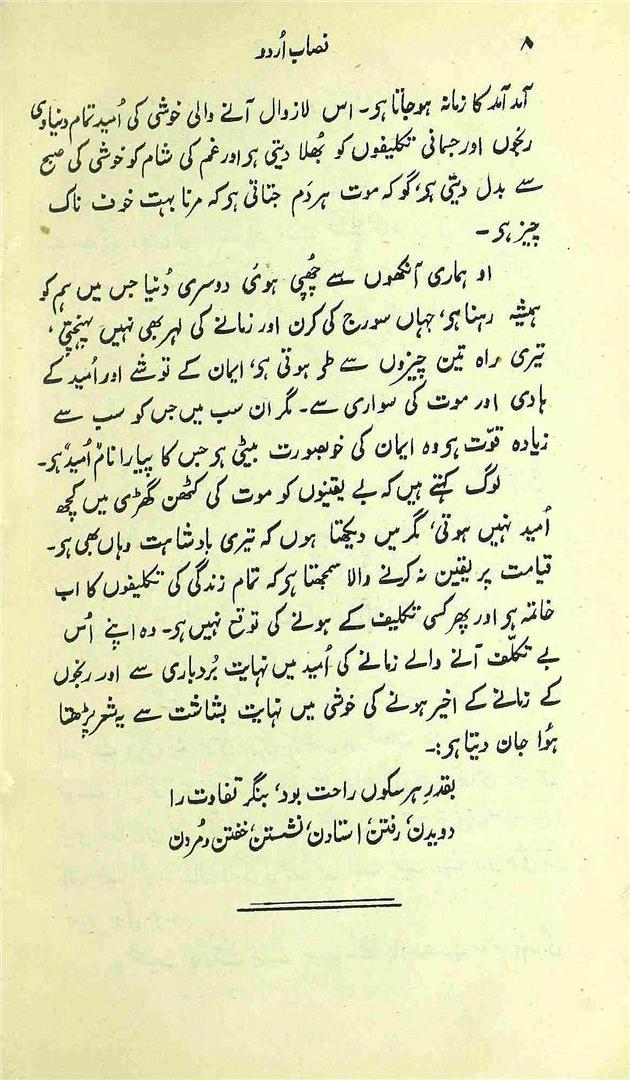 ۸
نصاب اُردو
آمد آمد کا زمانہ ہوجاتا ہو۔ اس لازوال آنے والی خوشی کی اُمید تمام دنیاوی
رنجوں اور جسمانی تکلیفوں کو بُھلا دیتی ہو اور غم کی شام کو خوشی کی صبح
سے بدل دیتی ہو، گو کہ موت ہر دَم جتاتی ہو کہ مرنا بہت خوف ناک
چیز ہو۔
او ہماری آنکھوں سے چُھپی ہوئی دوسری دُنیا جس میں ہم کو
ہمیشہ رہنا ہو، جہاں سورج کی کرن اور زمانے کی لہر بھی نہیں پہنچتی،
تیری راہ تین چیزوں سے طو ہوتی ہو، ایمان کے توشے اور اُمید کے
ہادی اور موت کی سواری سے۔ مگر ان سب میں جس کو سب سے
زیادہ قوّت ہو وہ ایمان کی خوبصورت بیٹی ہو جس کا پیارا نام "اُمید" ہو۔
لوگ کہتے ہیں کہ بے یقینوں کو موت کی کٹھن گھڑی میں کچھ
اُمید نہیں ہوتی، مگر میں دیکھتا ہوں کہ تیری بادشاہت وہاں بھی ہو۔
قیامت پر یقین نہ کرنے والا سمجھتا ہو کہ تمام زندگی کی تکلیفوں کا اب
خاتمہ ہو اور پھر کسی تکلیف کے ہونے کی توقع نہیں ہو۔ وہ اپنے اُس
بے تکلّف آنے والے زمانے کی اُمید میں نہایت بُردباری سے اور رنجوں
کے زمانے کے اخیر ہونے کی خوشی میں نہایت بشاشت سے یہ شعر پڑھتا
ہُوا جان دیتا ہو:۔
بقدرِ ہر سکوں راحت بود، بنگر تفاوت را
دویدن، رفتن، استادن، نشستن، خفتن و مُردن